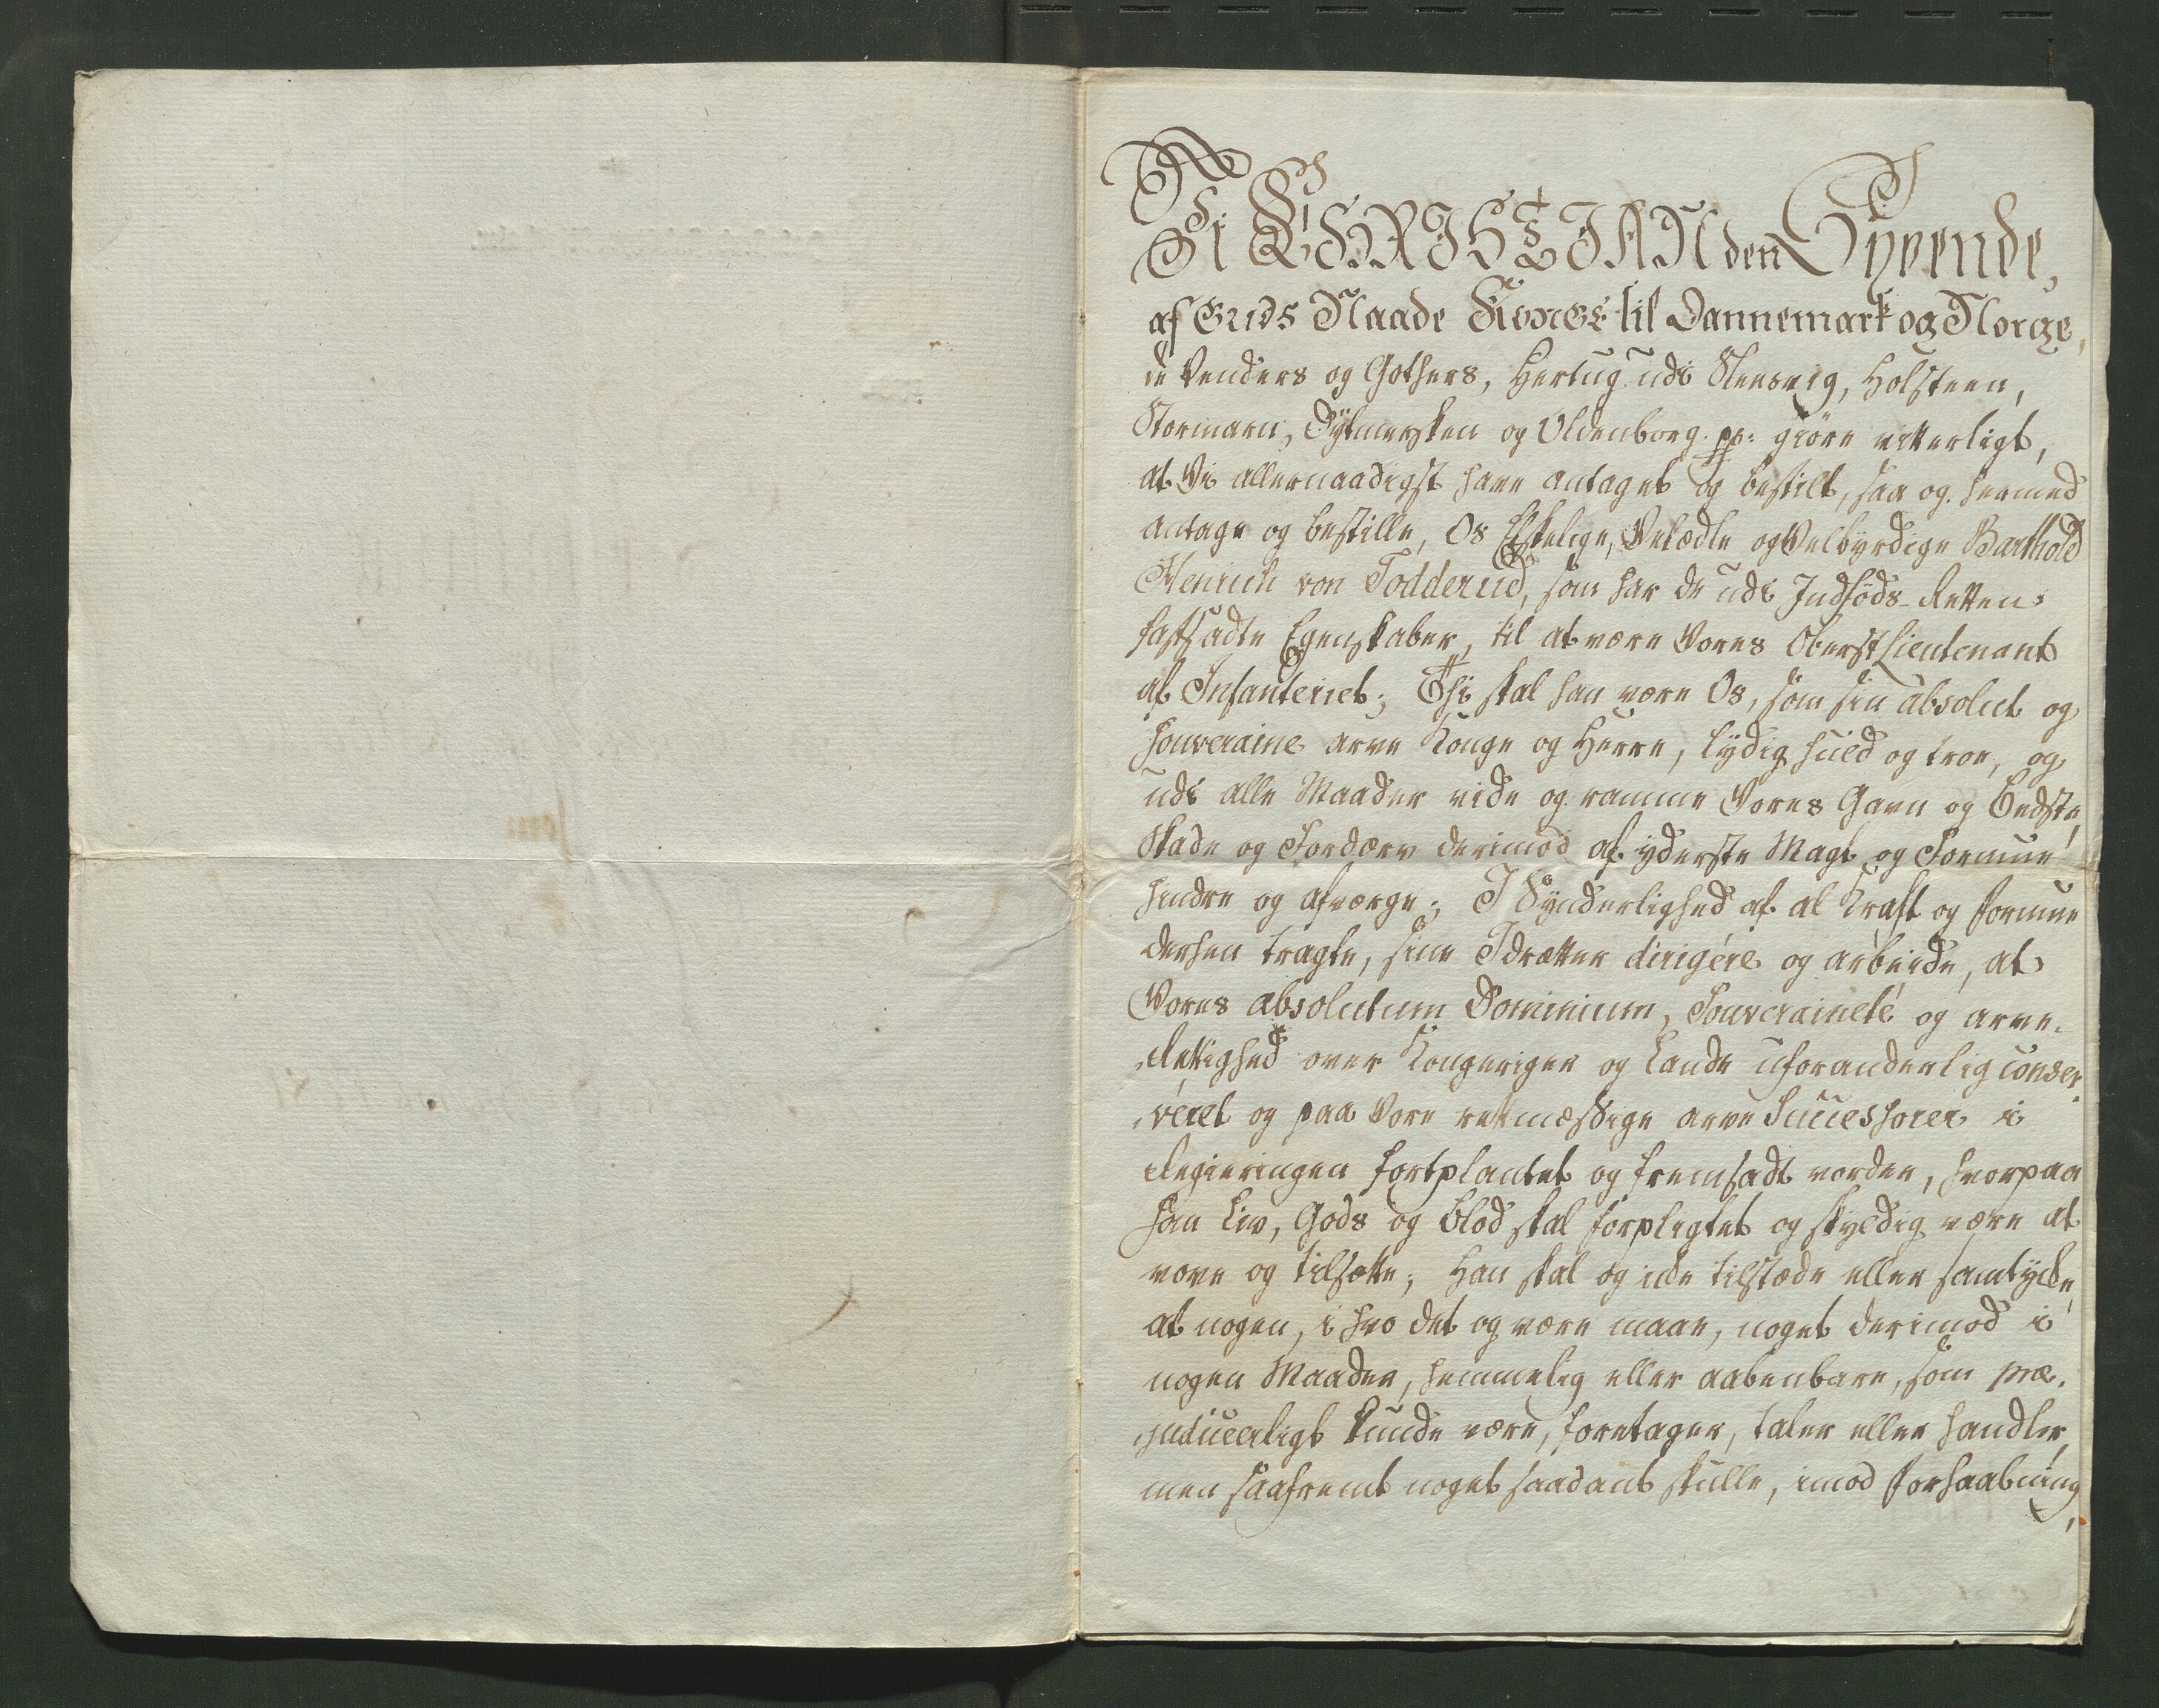 Vi CHRISTIAN den Syvende,
af Guds Naade Konge til Dannemark og Norge,
de Venders og Gothers, Hertug udi Slesvig, Holsteen,
Stormarn, Dytmersken og Oldenborg pp: giøre vitterligt,
at Vi allernaadigst have antaget og bestilt, saa og hermed
antage og bestille, Os Elskelige, Velædle og Velbyrdige Barthold
Henrich von Todderud, som har de udi Indføds-Retten
fastsadte Egenskaber, til at være Vores OberstLieutenant
af Infanteriet; Thi skal han være Os, som sin absolut og
souveraine arve Konge og Herre, lydig huld og troe, og
udi alle Maader vide og ramme Vores Gavn og Bedste,
Skade og Fordærv derimod af yderste Magt og Formue
hindre og afværge; I Synderlighed af al Kraft og Formue
derhen tragte, sine Idrætter dirigére og arbeide, at
Vores absolutum Dominium, Souverainetè og arve-
Rettighed over Kongeriger og Lande uforanderlig conser-
veret og paa Vore retmæssige arve Successorer i
Regieringen fortplantet og fremsadt vorder, hvorpaa
han Liv, Gods og Blod skal forpligtet og skyldig være at
vove og tilsætte; Han skal og ikke tilstæde eller samtykke,
at nogen, i hvo det og være maae, noget derimod i
nogen Maader, hemmelig eller aabenbare, som præ-
judiceerligt kunde være, foretager, taler eller handler,
men saafremt noget saadant skulle, imod Forhaabning,